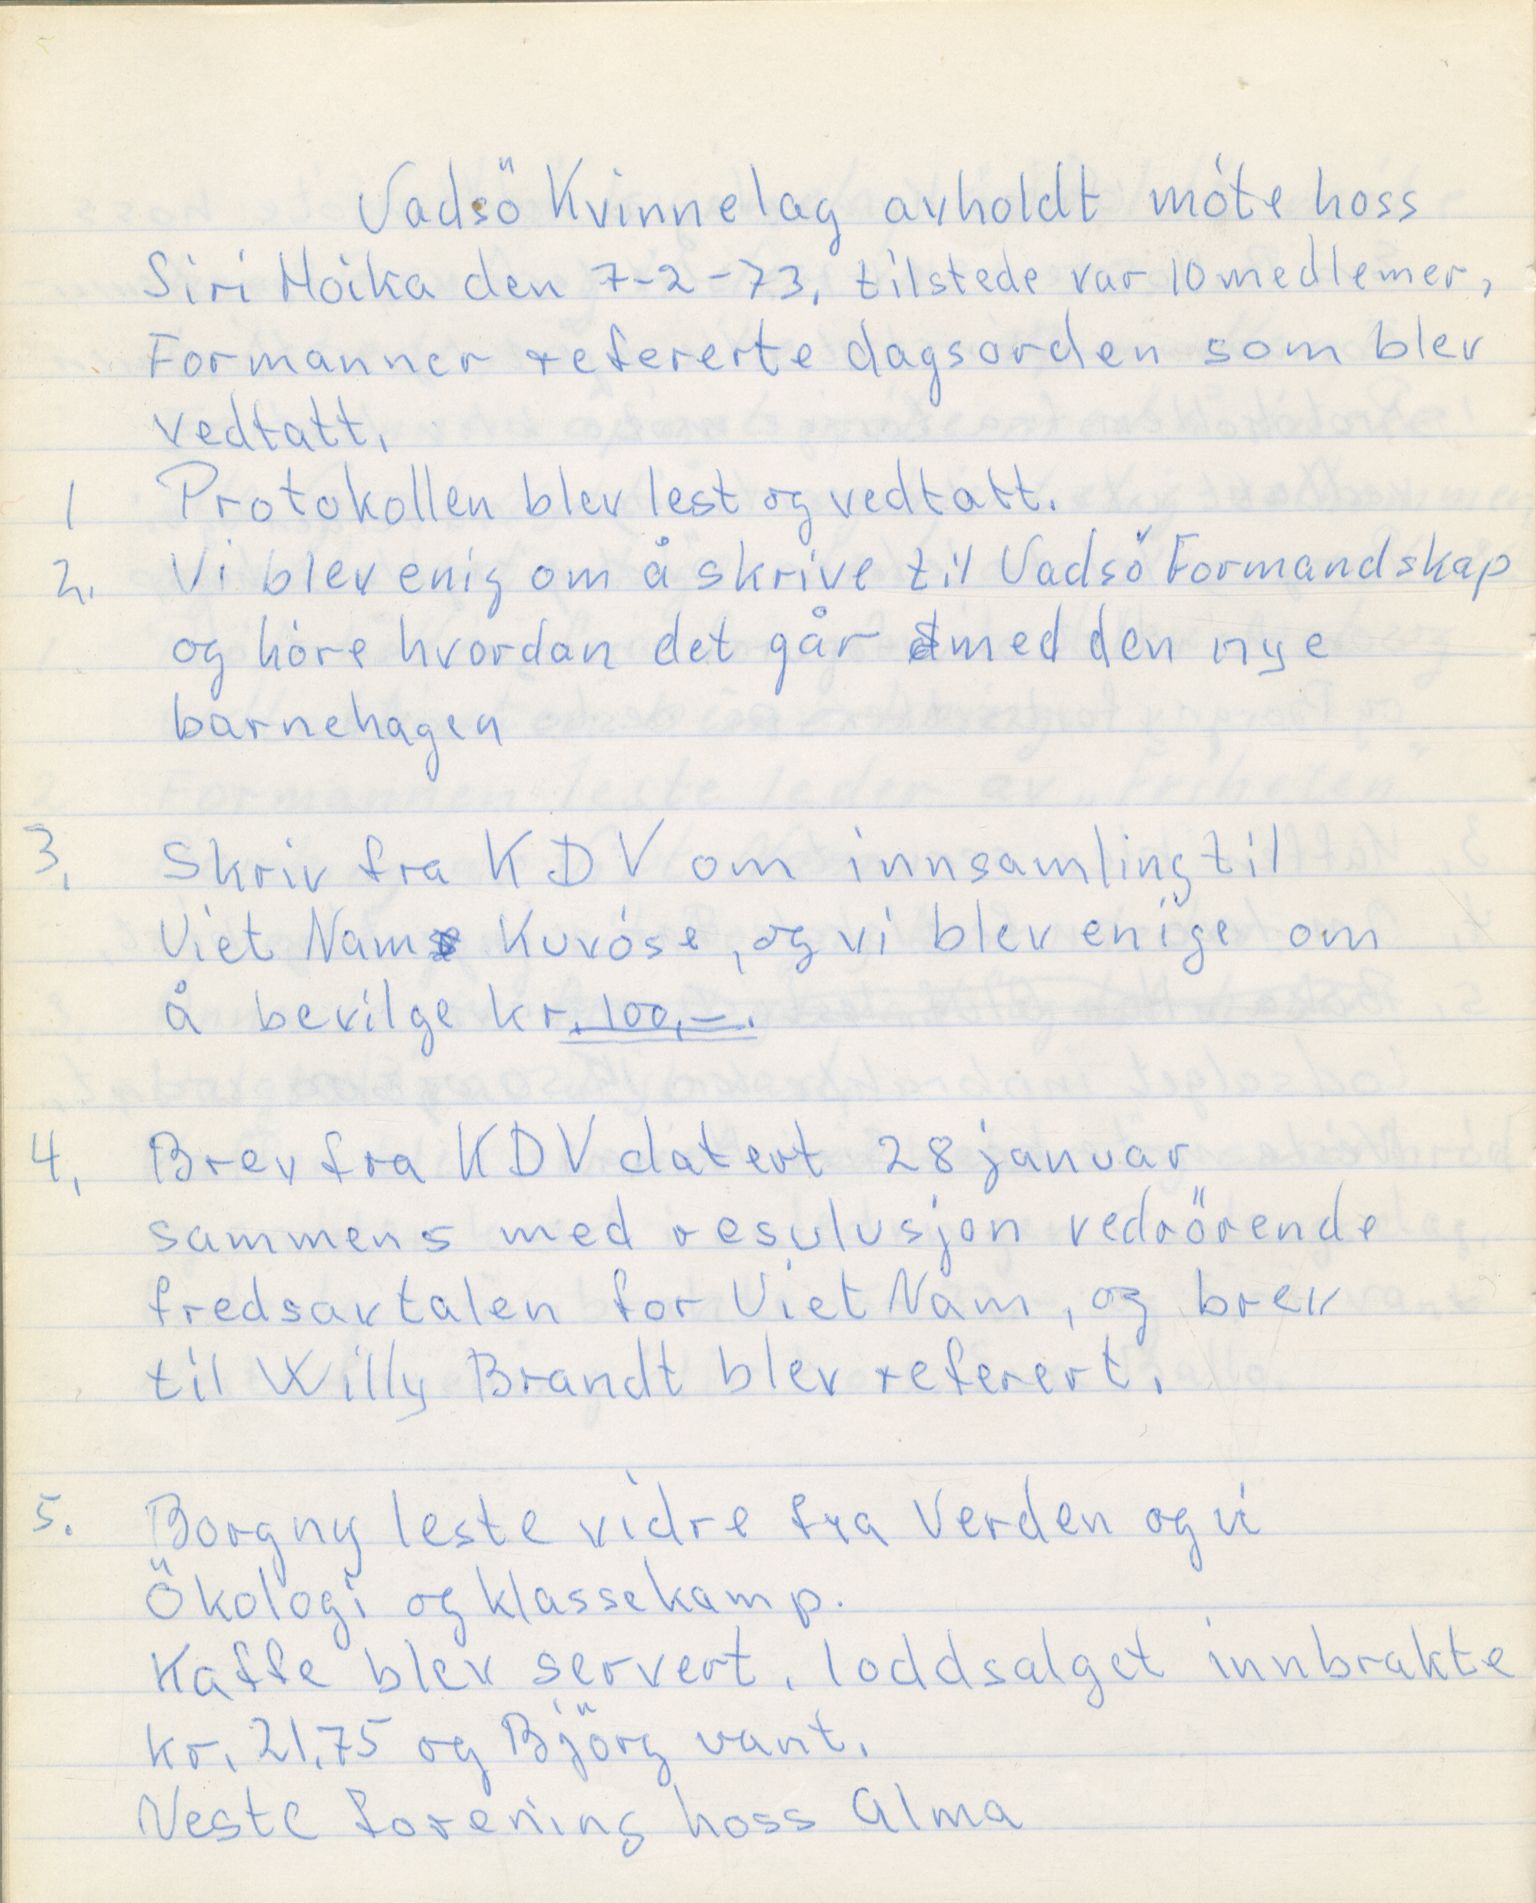 Vadsö Kvinnelag avholdt móte hoss
Siri Hoika den 7-2-73, tilstede var 10 medlemer,
Formannen refererte dagsorden som blev
vedtatt.
1 Protokollen blev lest og vedtatt.
2. Vi blev enig om å skrive til Vadsö Formandskap
og hóre hvordan det går med den nye
barnehagen
3. Skriv fra KDV om innsamling til
Viet Nam Kuvóse, og vi blev enige om
å bevilge kr. 100,-.
4. Brev fra KDV datert 28 januar
sammens med resulusjon vedrörende
fredsavtalen for Viet Nam, og brev
til Willy Brandt blev referert.
5. Borgny leste vidre fra Verden og vi
Ökologi og klassekamp.
Kaffe blev servert. loddsalget innbrakte
kr. 21.75 og Björg vant.
Neste forening hoss Alma